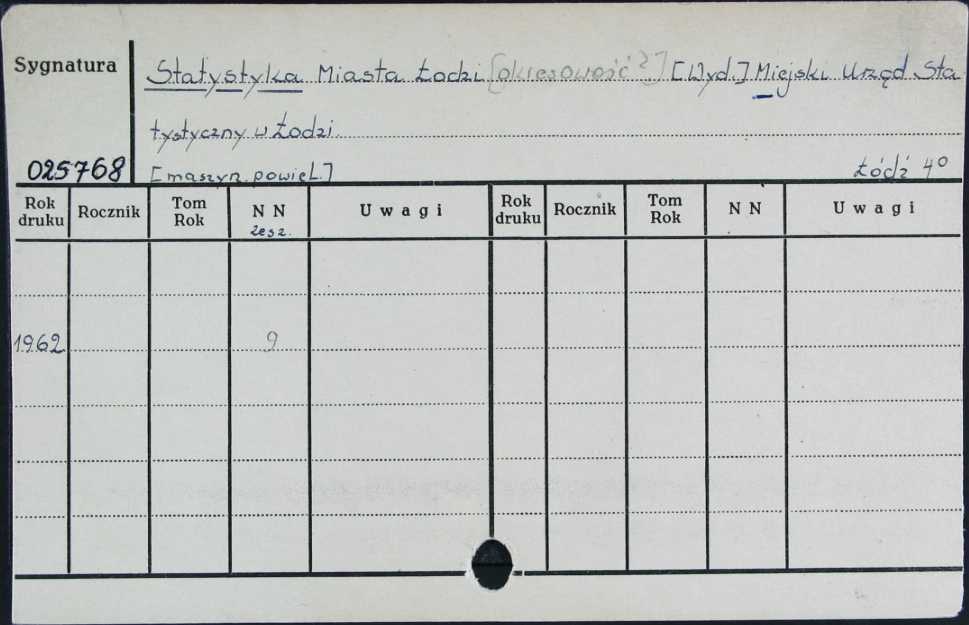 Sygnatura
Statystyka Miasta Łodzi [okresowość?] [Wyd.] Miejski Urząd Sta
tystyczny w Łodzi.
025768
[maszyn. powiel.] Łódź 4°
Rok druku Rocznik Tom Rok N N zesz. Uwagi Rok druku Rocznik Tom Rok N N Uwagi
1962 9